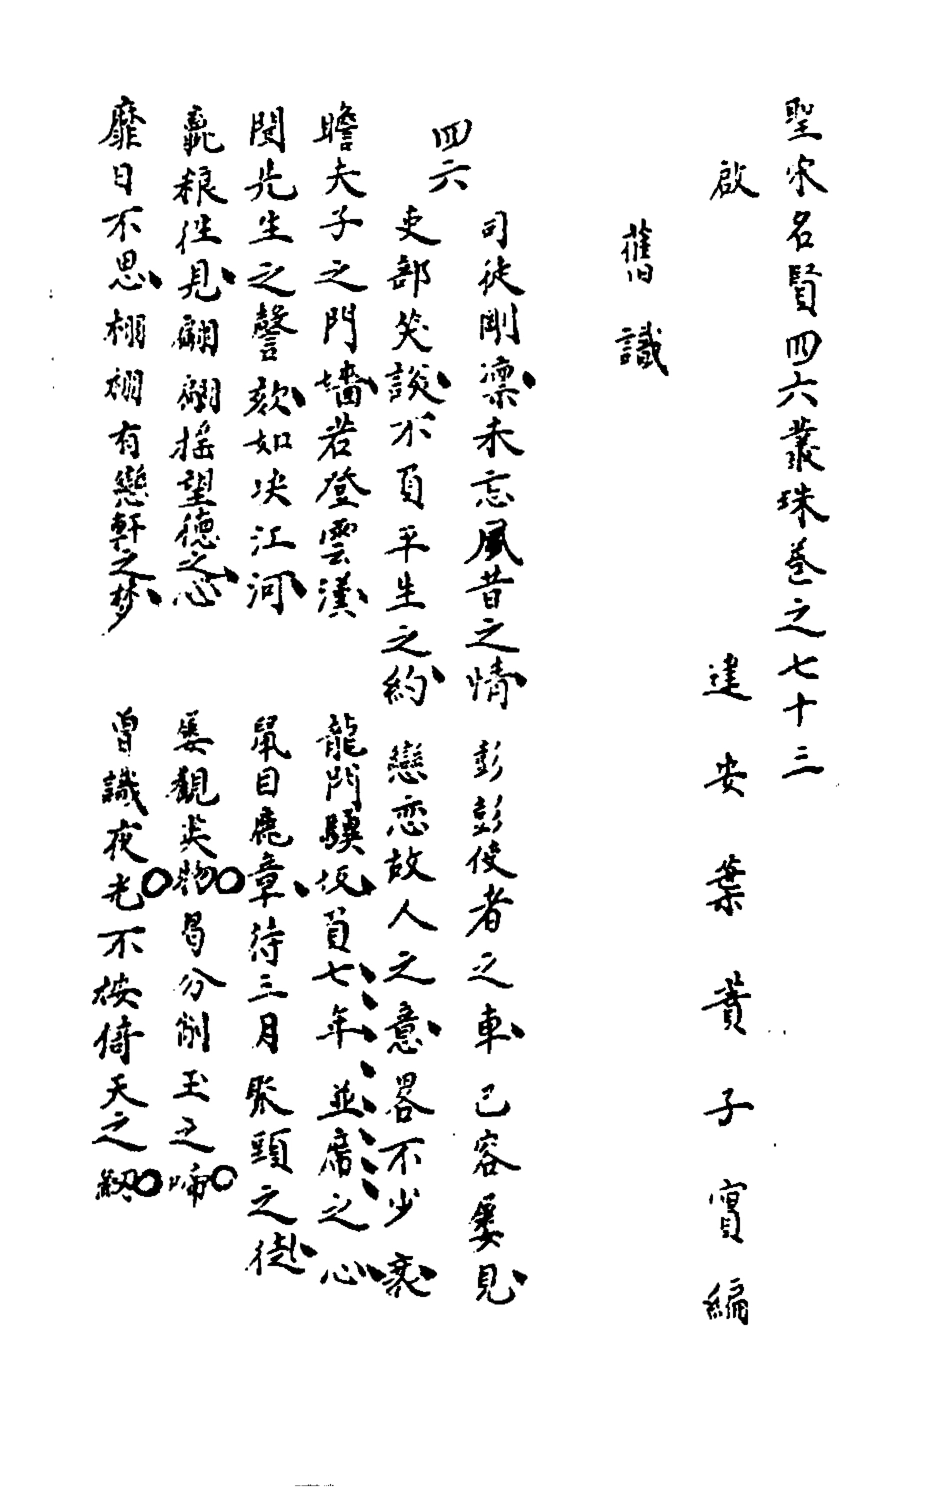 聖宋名賢四六叢珠卷之七十三
啟
建安葉蕡子實編
舊識
四六
司徒剛凛未忘風昔之情 彭彭使者之車已容屡見
吏部笑談不負平生之約 戀恋故人之意畧不少衰
瞻夫子之門墻若登雲漢 龍門驥坂負七年並席之心
聞先生之謦欬如决江河 鼠目麃章待三月聚頭之徙
毳粮徃見翩翩揺望德之心 屡觀尖物曷分削玉之啼
靡日不思栩栩有戀軒之梦 曾識夜光不按倚天之劒